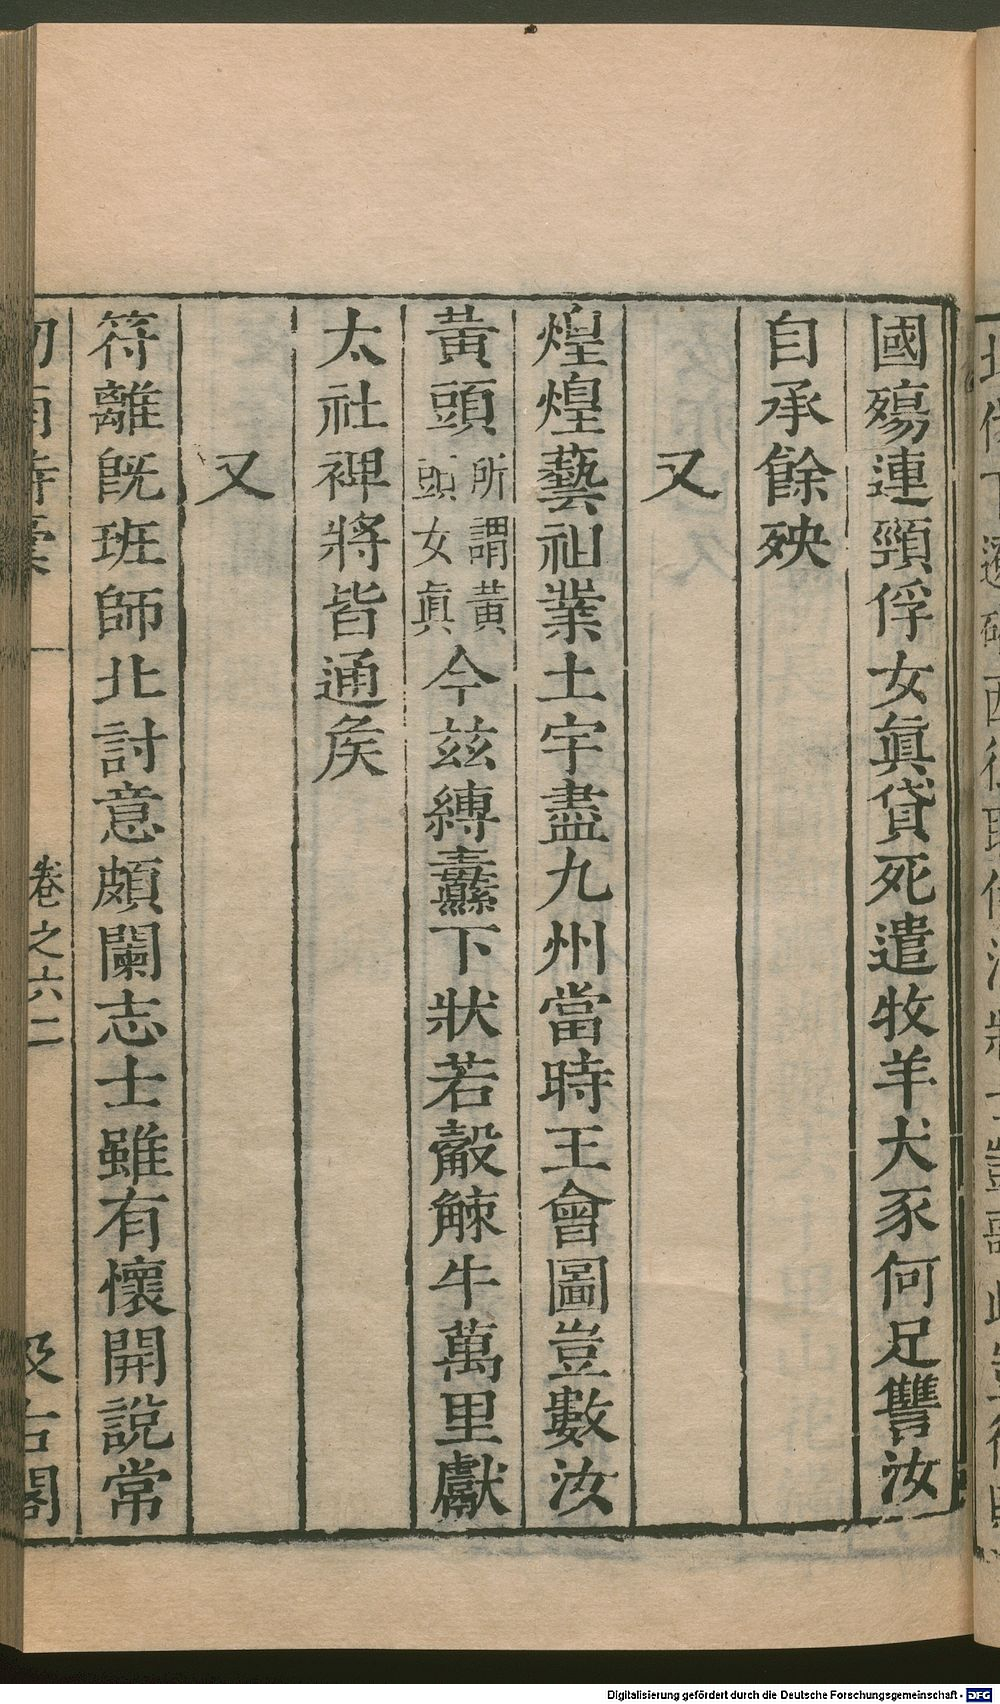 國殤連頸俘女眞貸死遣牧羊犬豕何足讐汝
自承餘殃
又
煌煌藝祖業土宇盡九州當時王會圖豈數汝
黃頭所謂黃頭女眞今茲縛纛下狀若觳觫牛萬里獻
太社裨將皆通矦
又
符離旣班師北討意頗闌志士雖有懷開說常
卷之六二
汲古閣
Digitalisierung gefördert durch die Deutsche Forschungsgemeinschaft - DFG